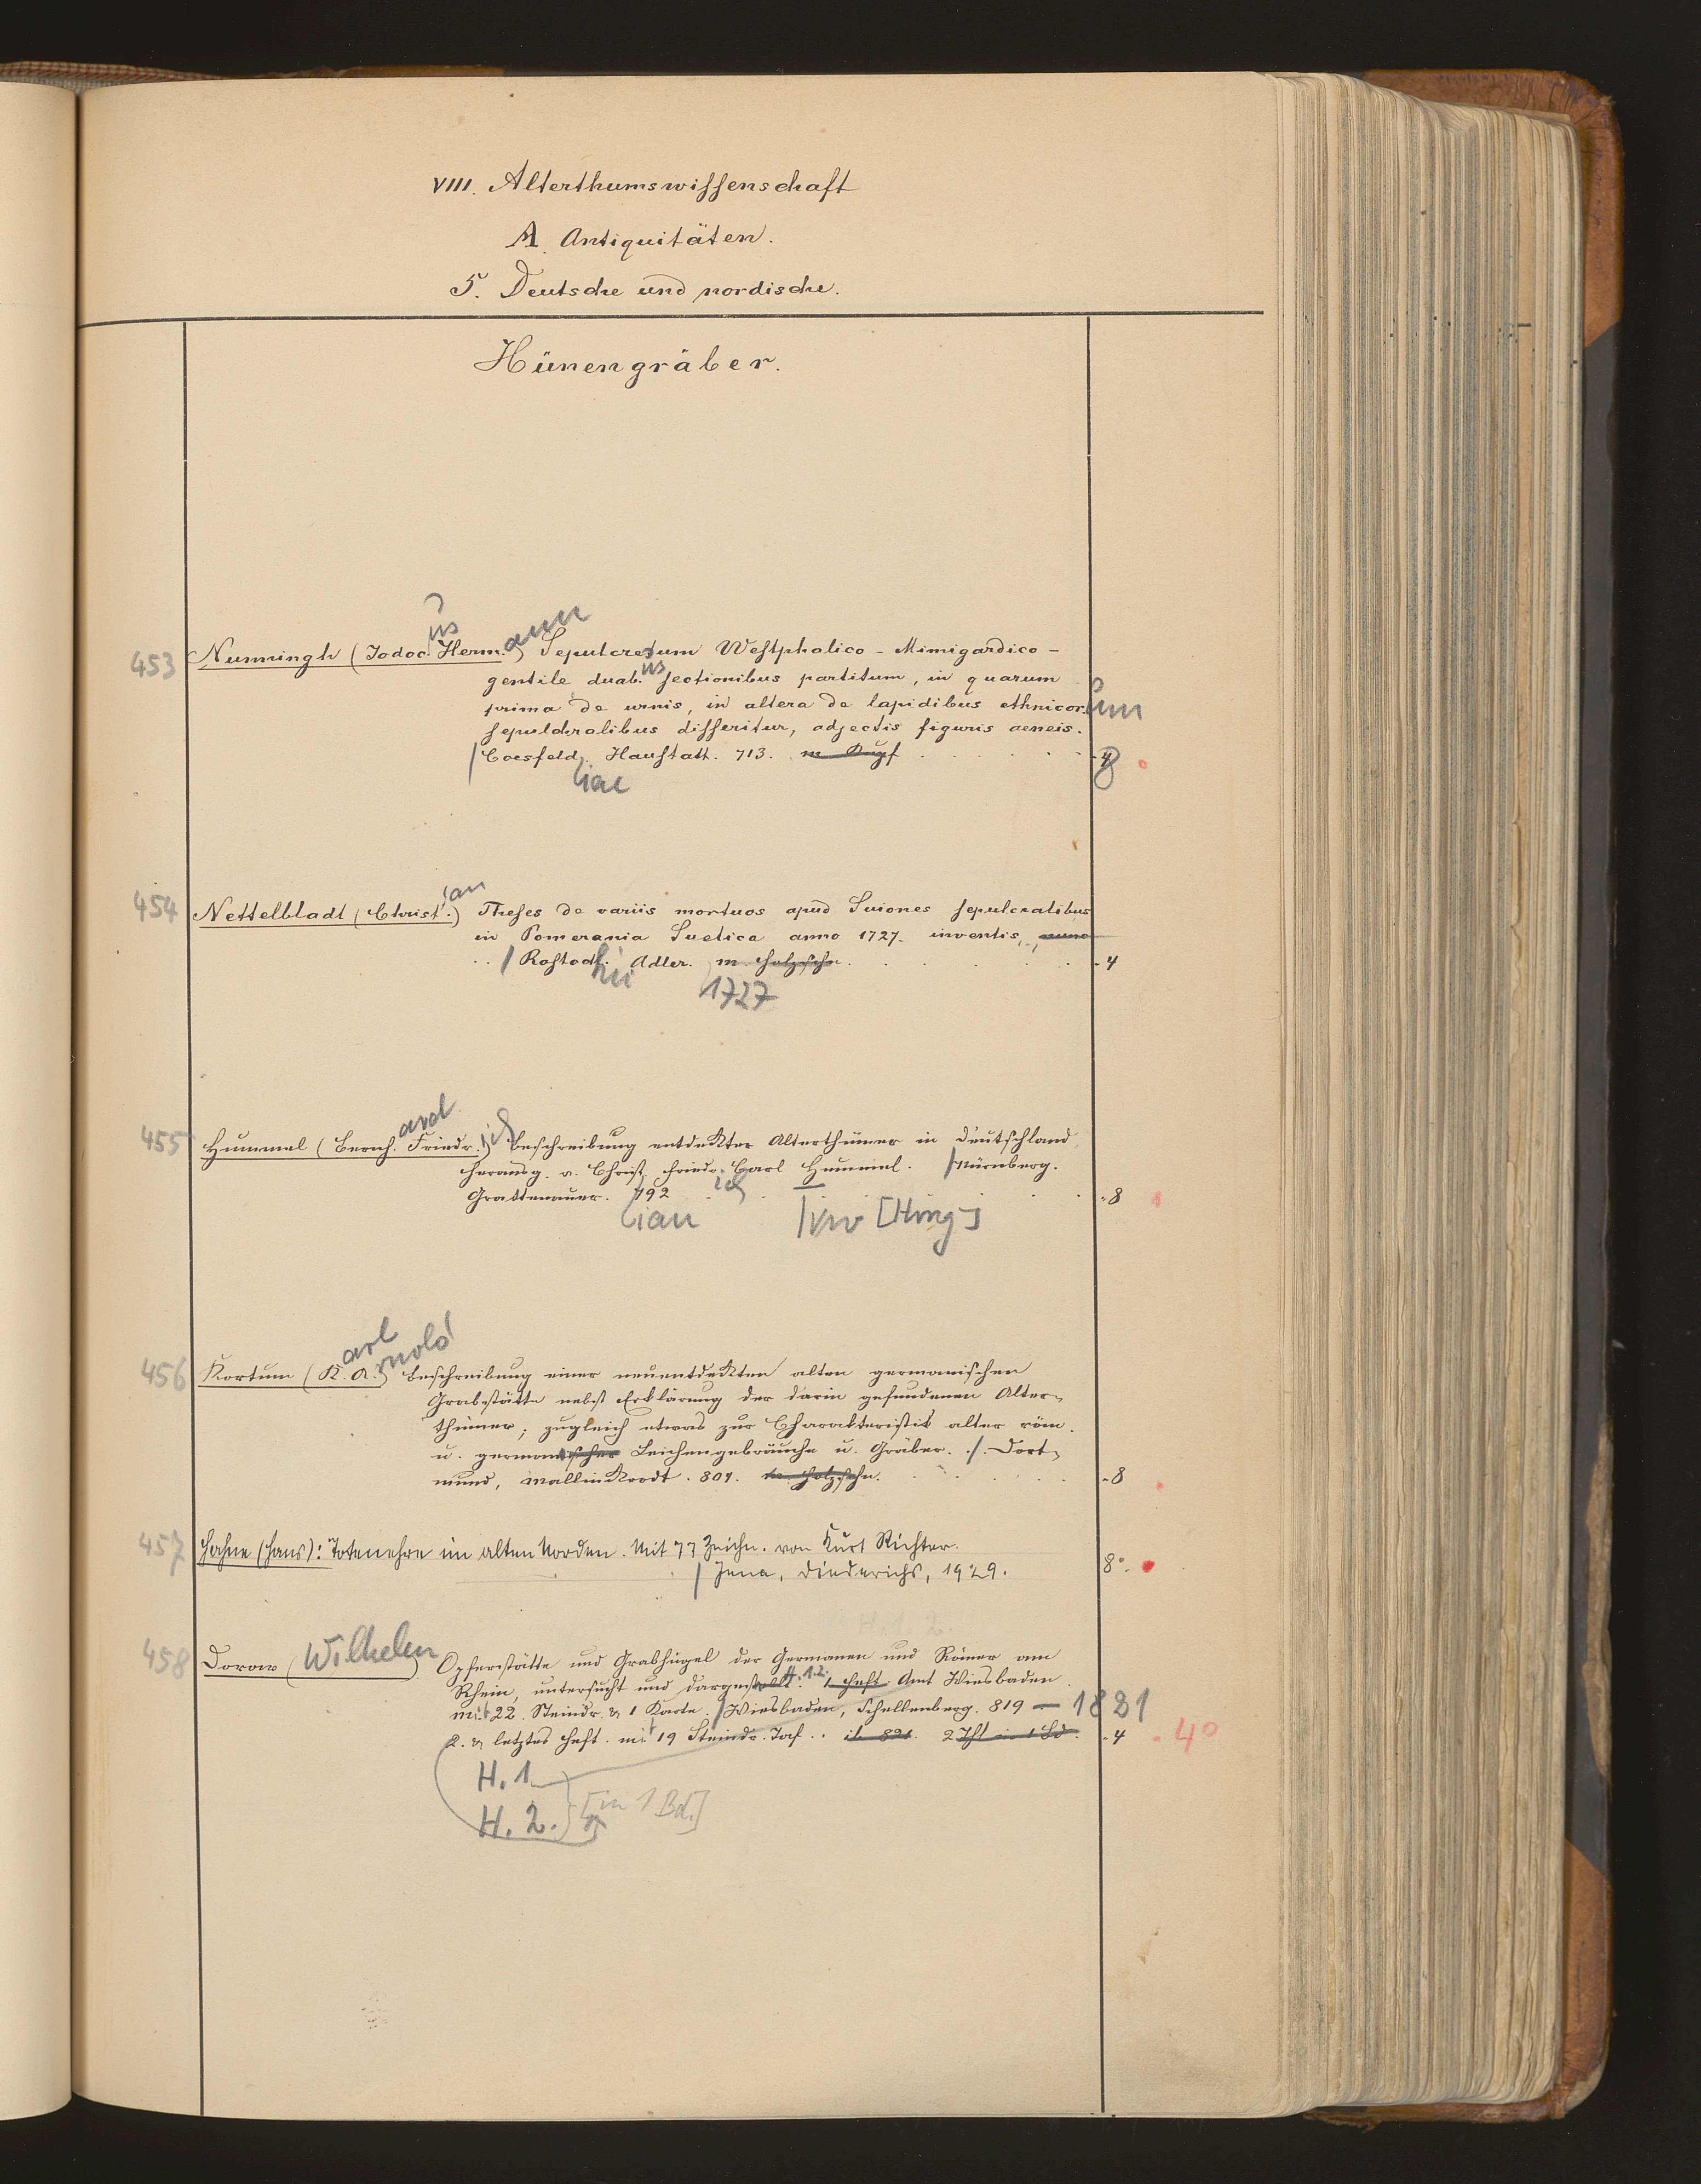 VIII. Alterthumswissenschaft
A. Antiquitäten.
5. Deutsche und nordische.
Hünengräber.
us ann
453 Nunningh (Jodoc. Herm.) Sepulcretum Westphalico - Mimigardico -
gentile duab.us sectionibus partitum, in quarum
prima de urnis, in altera de lapidibus ethnicor.um
sepulchralibus disseritur, adjectis figuris aeneis.
/ Coesfeld, Haustatt. 713. m Kupf - 4 8
iae
ian
454 Nettelbladt (Christ.) Theses de variis mortuos apud Suiones sepulcralibus
in Pomerania Suetica anno 1727. inventis,
/ Rostoch. Adler. m. Holzschn. - 4
hii 1727
ard
455 Hummel (Bernh. Friedr.ich) Beschreibung entdekter Alterthümer in Deutschland,
herausg. v. Christ. Friedr. Carl Hummel. / Nürnberg.
Grattenauer. 792 ich - 8
ian [Hrsg]
arl rnold
456 Kortum (K. A.) Beschreibung einer neuentdekten alten germanischen
Grabstätte nebst Erklärung der darin gefundenen Alter-
thümer; zugleich etwas zur Charakteristik alter röm.
u. germanischer Leichengebräuche u. Gräber. / Dort-
mund, Mallinkrodt. 804. m. Holzschn. - 8
457 Hahne (Hans): Totenehre im alten Norden. Mit 77 Zeichn. von Kurt Richter.
/ Jena, Diederichs, 1929. 8°.
H. 1. 2.
458 Dorow (Wilhelm) Opferstätte und Grabhügel der Germanen und Römer am
Rhein, untersucht und dargestellt. H. 1.2. 1 Heft. Amt Wiesbaden
mit 22. Steindr. & 1 Karte. / Wiesbaden, Schellenberg. 819 — 1821
2. & letztes Heft. mit 19 Steindr. Taf. ib 821. 2 Thl in 1 Bd. - 4 - 4°
H. 1
H. 2. [in 1 Bd.]